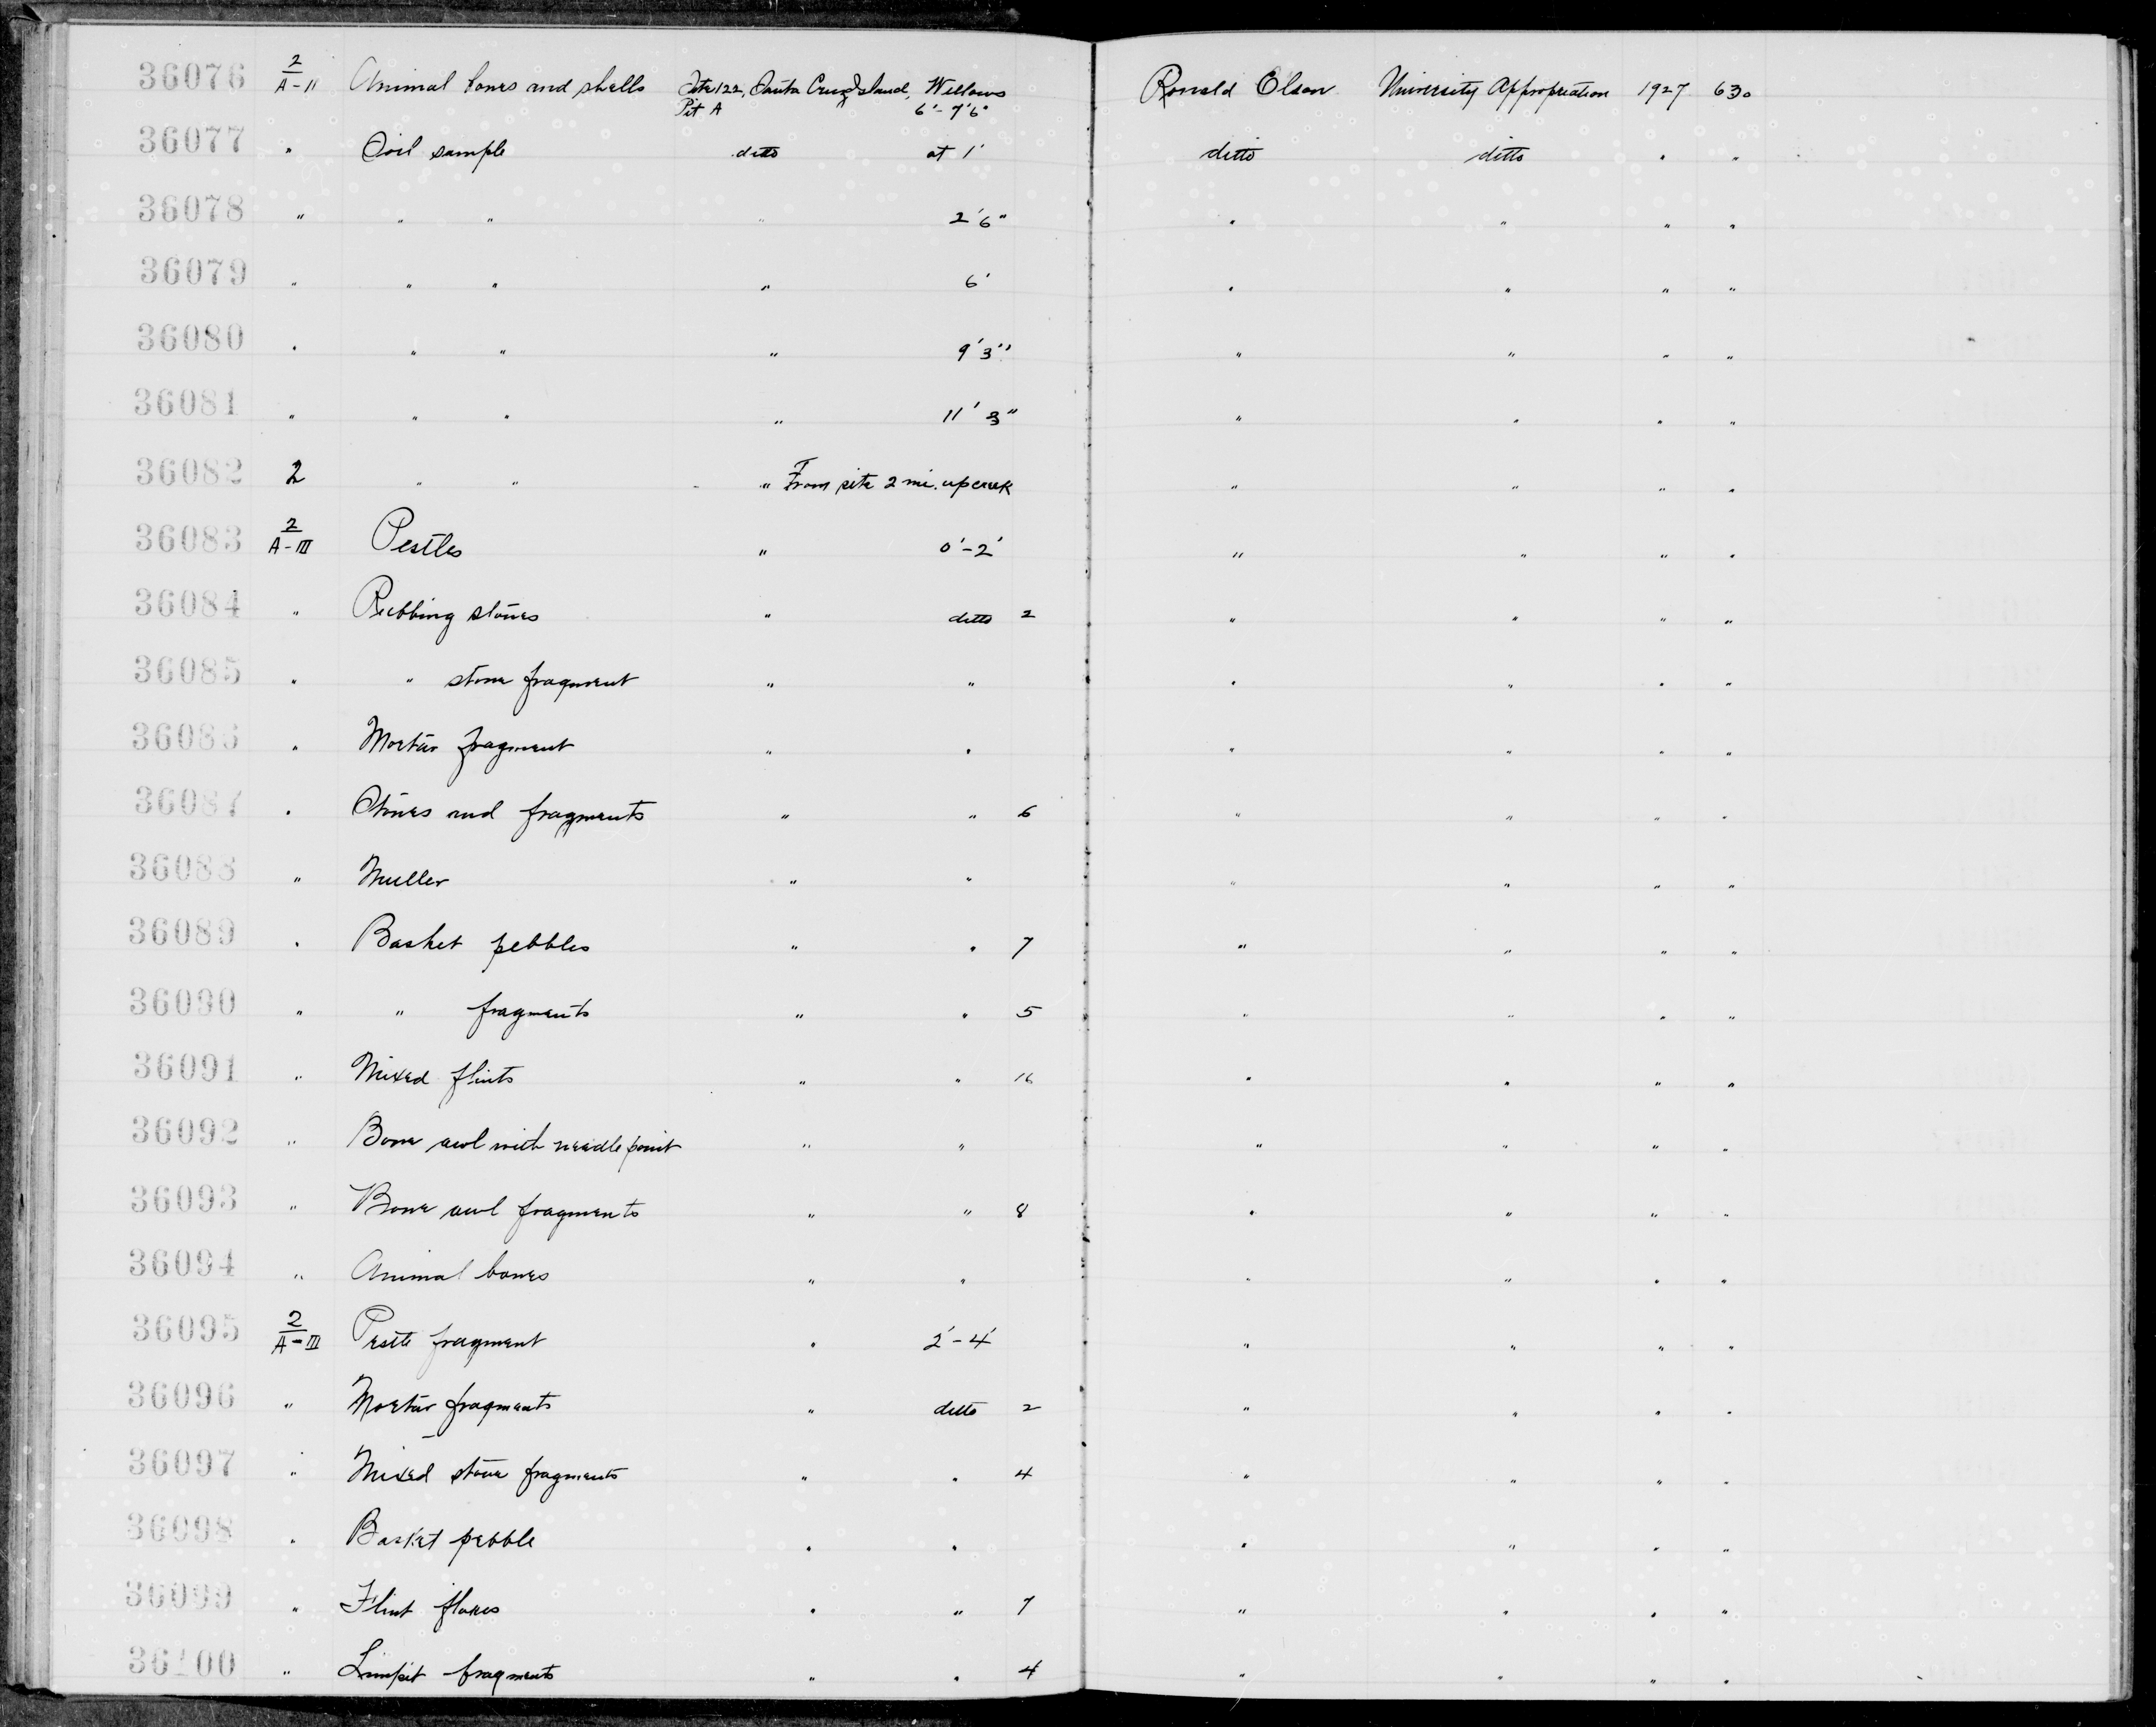 36076 2/A-II Animal bones and shells Site 122, Santa Cruz Island, Willows Ronald Olson University Appropriation 1927 630
Pit A 6'-7'6"
36077 " Soil sample ditto at 1' ditto ditto " "
36078 " " " " 2'6" " " " "
36079 " " " " 6' " " " "
36080 " " " " 9'3" " " " "
36081 " " " " 11'3" " " " "
36082 2 " " " From site 2 mi. up creek " " " "
36083 2/A-III Pestles " 0'-2' " " " "
36084 " Rubbing stones " ditto 2 " " " "
36085 " " stone fragment " " " " " "
36086 " Mortar fragment " " " " " "
36087 " Stones and fragments " " 6 " " " "
36088 " Muller " " " " " "
36089 " Basket pebbles " " 7 " " " "
36090 " " fragments " " 5 " " " "
36091 " Mixed flints " " 16 " " " "
36092 " Bone awl with needle point " " " " " "
36093 " Bone awl fragments " " 8 " " " "
36094 " Animal bones " " " " " "
36095 2/A-III Pestle fragment " 2'-4' " " " "
36096 " Mortar fragments " ditto 2 " " " "
36097 " Mixed stone fragments " " 4 " " " "
36098 " Basket pebble " " " " " "
36099 " Flint flakes " " 7 " " " "
36100 " Limpit fragments " " 4 " " " "